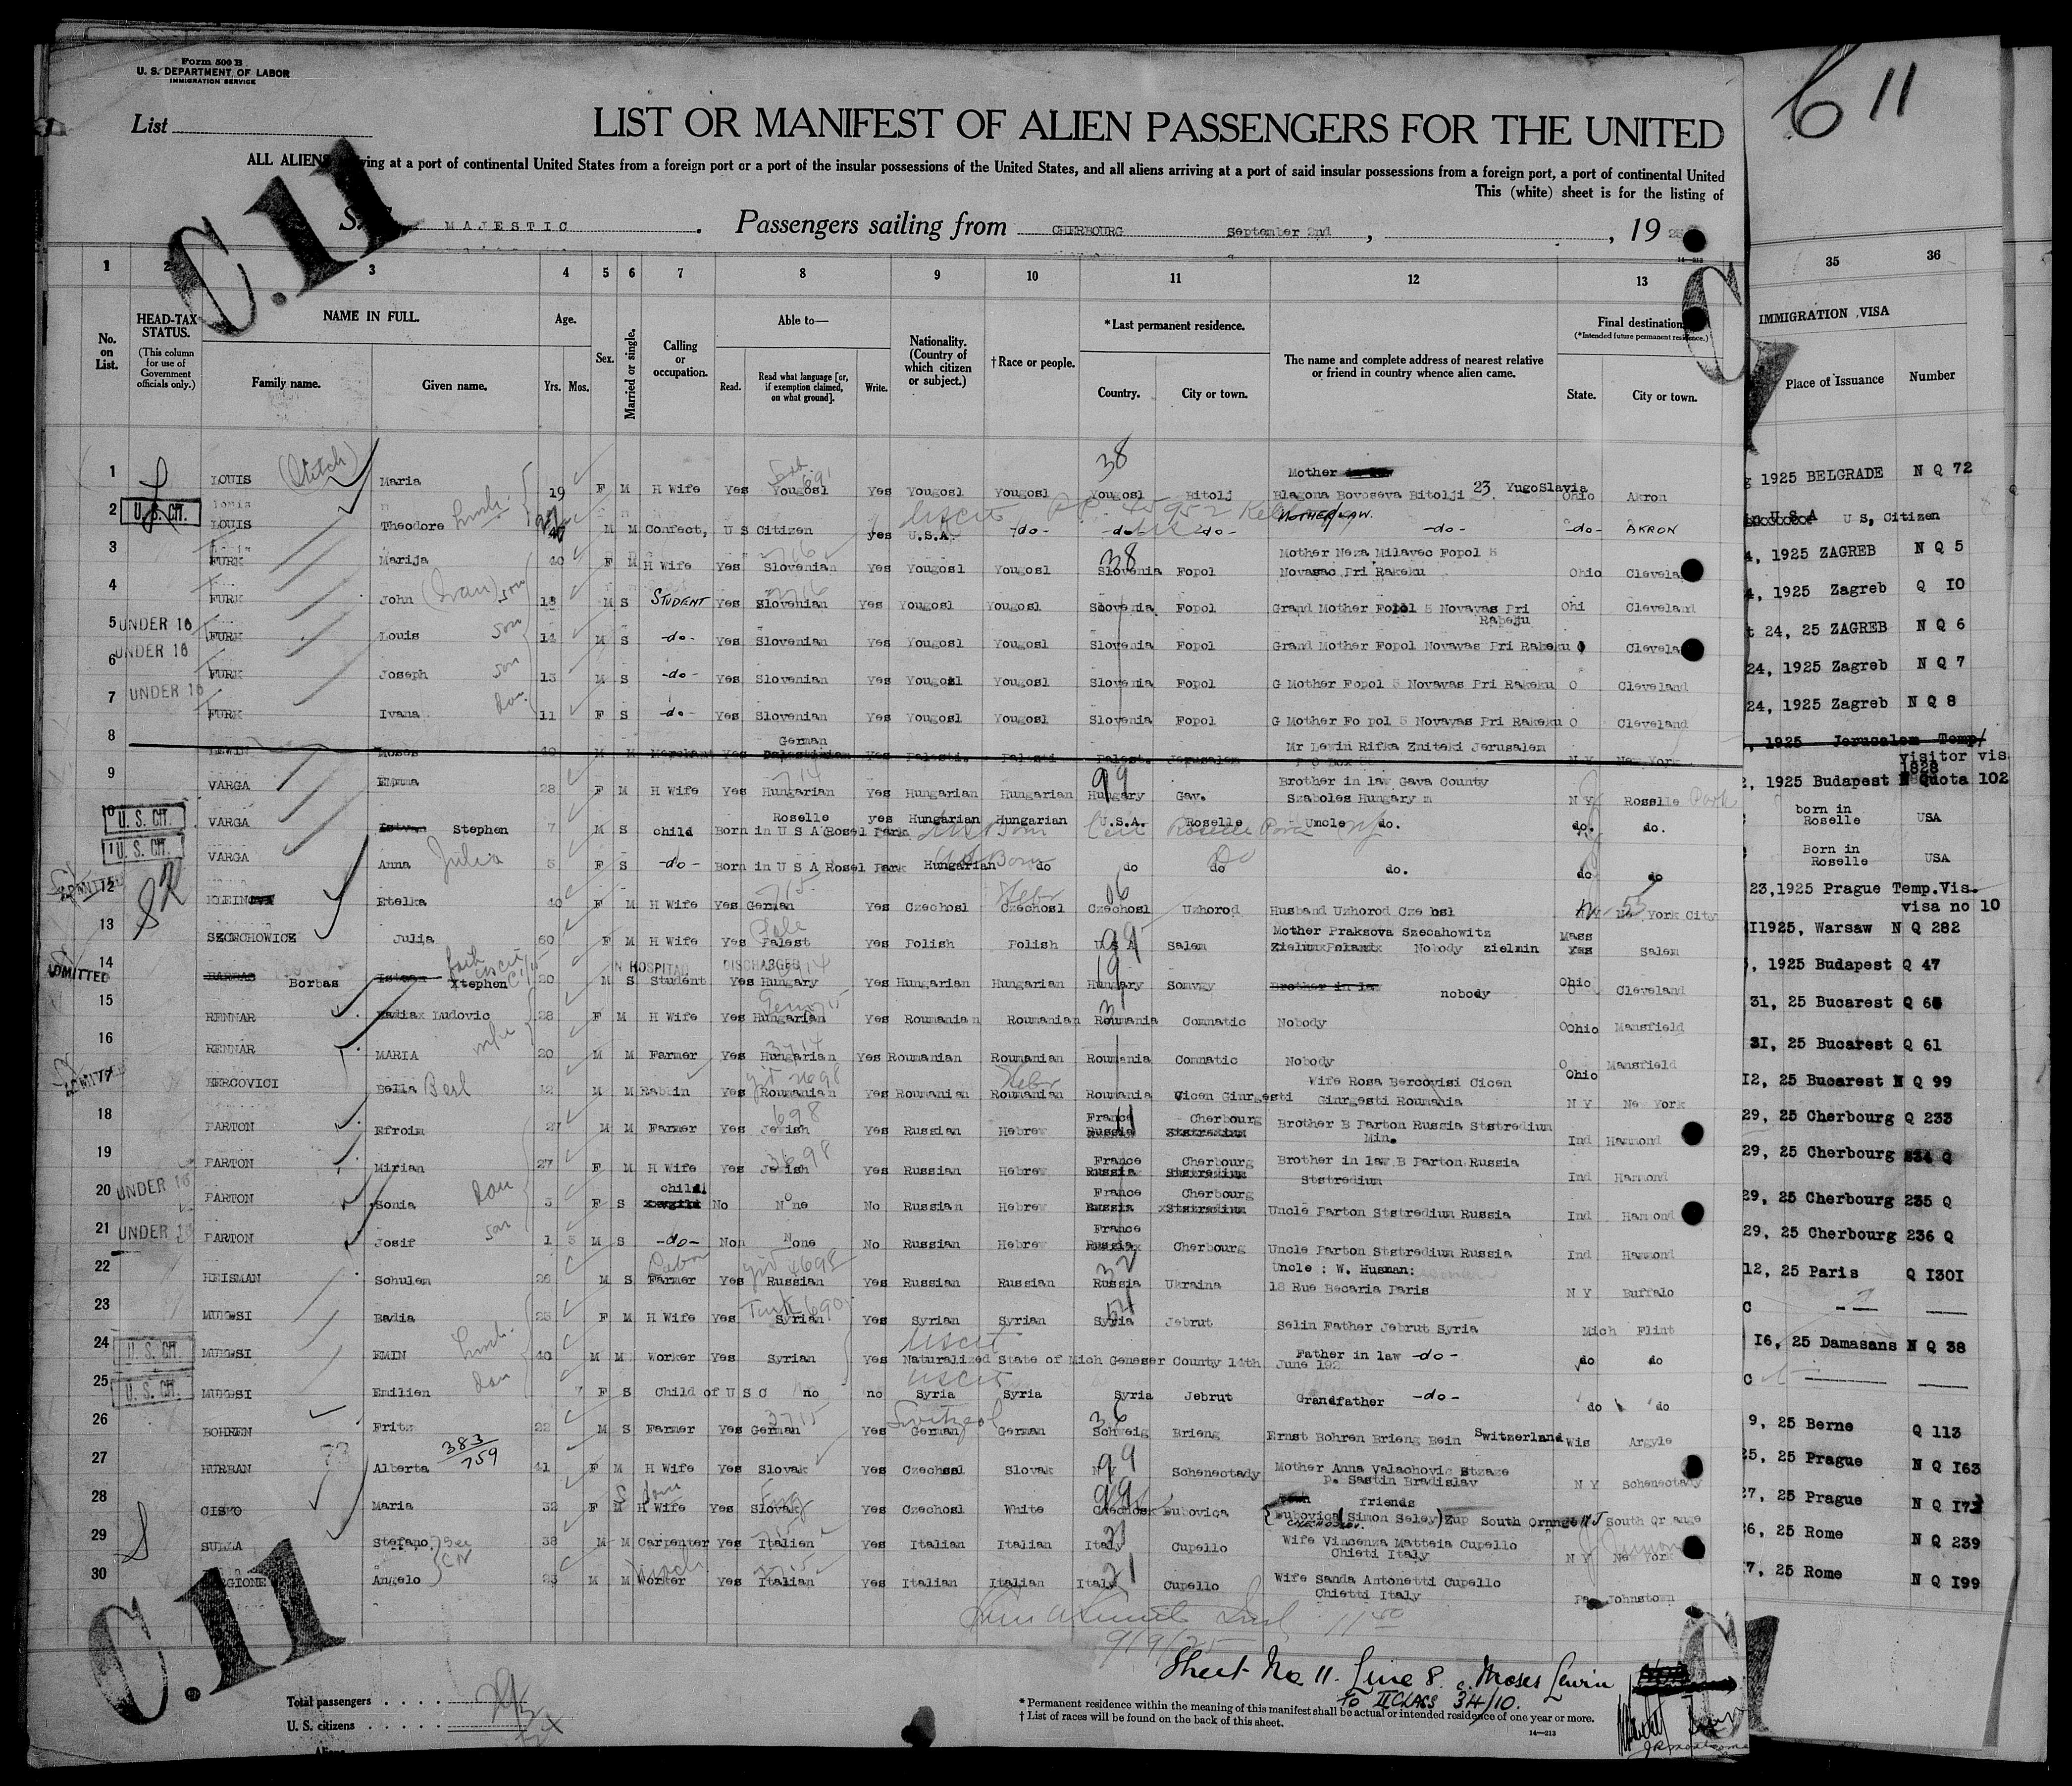 Form 500 B
U. S. DEPARTMENT OF LABOR
IMMIGRATION SERVICE
C 11
List
LIST OR MANIFEST OF ALIEN PASSENGERS FOR THE UNITED
ALL ALIENS arriving at a port of continental United States from a foreign port or a port of the insular possessions of the United States, and all aliens arriving at a port of said insular possessions from a foreign port, a port of continental United
This (white) sheet is for the listing of
C.11
S. MAJESTIC . Passengers sailing from CHERBOURG September 2nd , , 19 25
1 2 3 4 5 6 7 8 9 10 11 12 13 35 36
No. on List. HEAD-TAX STATUS. (This column for use of Government officials only.) NAME IN FULL. Family name. Given name. Age. Yrs. Mos. Sex. Married or single. Calling or occupation. Able to— Read. Read what language [or, if exemption claimed, on what ground]. Write. Nationality. (Country of which citizen or subject.) †Race or people. *Last permanent residence. Country. City or town. The name and complete address of nearest relative or friend in country whence alien came. Final destination (*Intended future permanent residence.) State. City or town. IMMIGRATION VISA Place of Issuance Number
1 LOUIS Maria 19 F M H Wife Yes Yougosl Yes Yougosl Yougosl Yougosl Bitolj Mother Blagona Bovoseva Bitolji 23 YugoSlavia Ohio Akron 1925 BELGRADE N Q 72
2 U. S. CIT. LOUIS Theodore M M Confect, U S Citizen yes U.S.A. -do- -do- -do- MOTHER/LAW. -do- -do- AKRON U.S.A U S, Citizen
3 FURK Marija 40 F M H Wife Yes Slovenian Yes Yougosl Yougosl Slovenia Fopol Mother Neza Milavec Fopol Novasac Pri Rakeku Ohio Cleveland 4, 1925 ZAGREB N Q 5
4 FURK John (Ivan) son 18 M S STUDENT Yes Slovenian Yes Yougosl Yougosl Slovenia Fopol Grand Mother Fopol 5 Novavas Pri Rakeku Ohi Cleveland 4, 1925 Zagreb Q 10
5 UNDER 16 FURK Louis son 14 M S -do- Yes Slovenian Yes Yougosl Yougosl Slovenia Fopol Grand Mother Fopol Novavas Pri Rakeku O Cleveland t 24, 25 ZAGREB N Q 6
6 UNDER 16 FURK Joseph son 13 M S -do- Yes Slovenian Yes Yougosl Yougosl Slovenia Fopol G Mother Fopol 5 Novavas Pri Rakeku O Cleveland 24, 1925 Zagreb N Q 7
7 UNDER 16 FURK Ivana dau. 11 F S -do- Yes Slovenian Yes Yougosl Yougosl Slovenia Fopol G Mother Fo pol 5 Novavas Pri Rakeku O Cleveland 24, 1925 Zagreb N Q 8
8 LEWIN Moses M M Merchant Yes German Palestinian Yes Palesti. Palesti Palest. Jerusalem Mr Lewin Rifka Zniteki Jerusalem P O Box N Y New York , 1925 Jerusalem Temp/ visitor vis 1828
9 VARGA Emma 28 F M H Wife Yes Hungarian Yes Hungarian Hungarian Hungary Gav. Brother in law Gava County Szaboles Hungary N Y Roselle Park 2, 1925 Budapest N Quota 102
10 U. S. CIT. VARGA Stephen 7 M S child Born in U S A Roselle Rosel Park yes Hungarian Hungarian U.S.A. Roselle Uncle do. do. do. born in Roselle USA
11 U. S. CIT. VARGA Anna Julia 5 F S -do- Born in U S A Rosel Park Hungarian do do do do. do do Born in Roselle USA
12 ADMITTED KLEIN Etelka 40 F M H Wife Yes German Yes Czechosl Czechosl Czechosl Uzhorod Husband Uzhorod Cze hsl N Y New York City 23,1925 Prague Temp.Vis. visa no 10
13 SZCECHOWICZ Julia 60 F M H Wife Yes Palest Yes Polish Polish U S A Salem Mother Praksova Szecahowitz Nobody zielmin Mass Salem I1925, Warsaw N Q 282
14 ADMITTED Borbas Stephen 20 M S IN HOSPITAL DISCHARGED Student Yes Hungary Yes Hungarian Hungarian Hungary Somvgy Brother in law nobody Ohio Cleveland , 1925 Budapest Q 47
15 RENNAR Ludovic 28 F M H Wife Yes Hungarian Yes Roumanian Roumanian Roumania Comnatic Nobody Ohio Mansfield 31, 25 Bucarest Q 60
16 RENNAR MARIA wife 20 M M Farmer Yes Hungarian Yes Roumanian Roumanian Roumania Comnatic Nobody O Mansfield 31, 25 Bucarest Q 61
17 ADMITTED BERCOVICI Bella Berl 42 M M Rabbin Yes Roumanian Yes Roumanian Roumanian Roumania Cicen Giurgesti Wife Rosa Bercovisi Cicen Giurgesti Roumania Ohio N Y New York I2, 25 Bucarest N Q 99
18 PARTON Efroim 27 M M Farmer Yes Jewish Yes Russian Hebrew France Russia Cherbourg Brother B Parton Russia Ststredium Min. Ind Hammond 29, 25 Cherbourg Q 233
19 PARTON Mirian 27 F M H Wife Yes Jewish Yes Russian Hebrew France Russia Cherbourg Brother in law B Parton Russia Ststredium Ind Hammond 29, 25 Cherbourg 234 Q
20 UNDER 16 PARTON Sonia dau 3 F S child No None No Russian Hebrew France Russia Cherbourg Uncle Parton Ststredium Russia Ind Hammond 29, 25 Cherbourg 235 Q
21 UNDER 16 PARTON Josif son 1 3 M S -do- Non None No Russian Hebrew France Russia Cherbourg Uncle Parton Ststredium Russia Ind Hammond 29, 25 Cherbourg 236 Q
22 HEISMAN Schulem 26 M S Farmer Yes Russian Yes Russian Russian Russia Ukraina Uncle : W. Husman: 18 Rue Becaria Paris N Y Buffalo 12, 25 Paris Q I30I
23 MUNGSI Badia 25 F M H Wife Yes Syrian Yes Syrian Syrian Syria Jebrut Selin Father Jebrut Syria Mich Flint C
24 U. S. CIT. MUNGSI EMIN husb. 40 M M Worker Yes Syrian Yes Naturalized State of Mich Geneser County 14th June 192 Father in law -do- do do I6, 25 Damasans N Q 38
25 U. S. CIT. MUNGSI Emilien dau 7 F S Child of U S C no no Syria Syria Syria Jebrut Grandfather -do- do do C
26 BOHREN Fritz 22 M S Farmer Yes German Yes German German Schweig Brieng Ernst Bohren Brieng Bein Switzerland Wis Argyle 9, 25 Berne Q 113
27 HURBAN Alberta 383/759 41 F M H Wife Yes Slovak Yes Czechosl Slovak N Y Schenectady Mother Anna Valachovic Stzaze P. Sastin Bradislav N Y Schenectady 25, 25 Prague N Q I63
28 CISKO Maria 32 F M H Wife Yes Slovak Yes Czechosl White Czechosk Bubovica friends Bubovica (Simon Seley) Zup South Orange N J South Or ange 27, 25 Prague N Q I73
29 SULLA Stefano 38 M M Carpenter Yes Italien Yes Italian Italian Italy Cupello Wife Vincenza Matteia Cupello Chieti Italy N Y New York 26, 25 Rome N Q 239
30 Angelo 25 M M Worker Yes Italian Yes Italian Italian Italy Cupello Wife Sanda Antonetti Cupello Chietti Italy Pa Johnstown 7, 25 Rome N Q I99
9/9/25
C.11
Sheet No 11. Line 8. Moses Lewin
to II CLASS 34/10.
Total passengers
U. S. citizens
* Permanent residence within the meaning of this manifest shall be actual or intended residence of one year or more.
† List of races will be found on the back of this sheet.
14—213